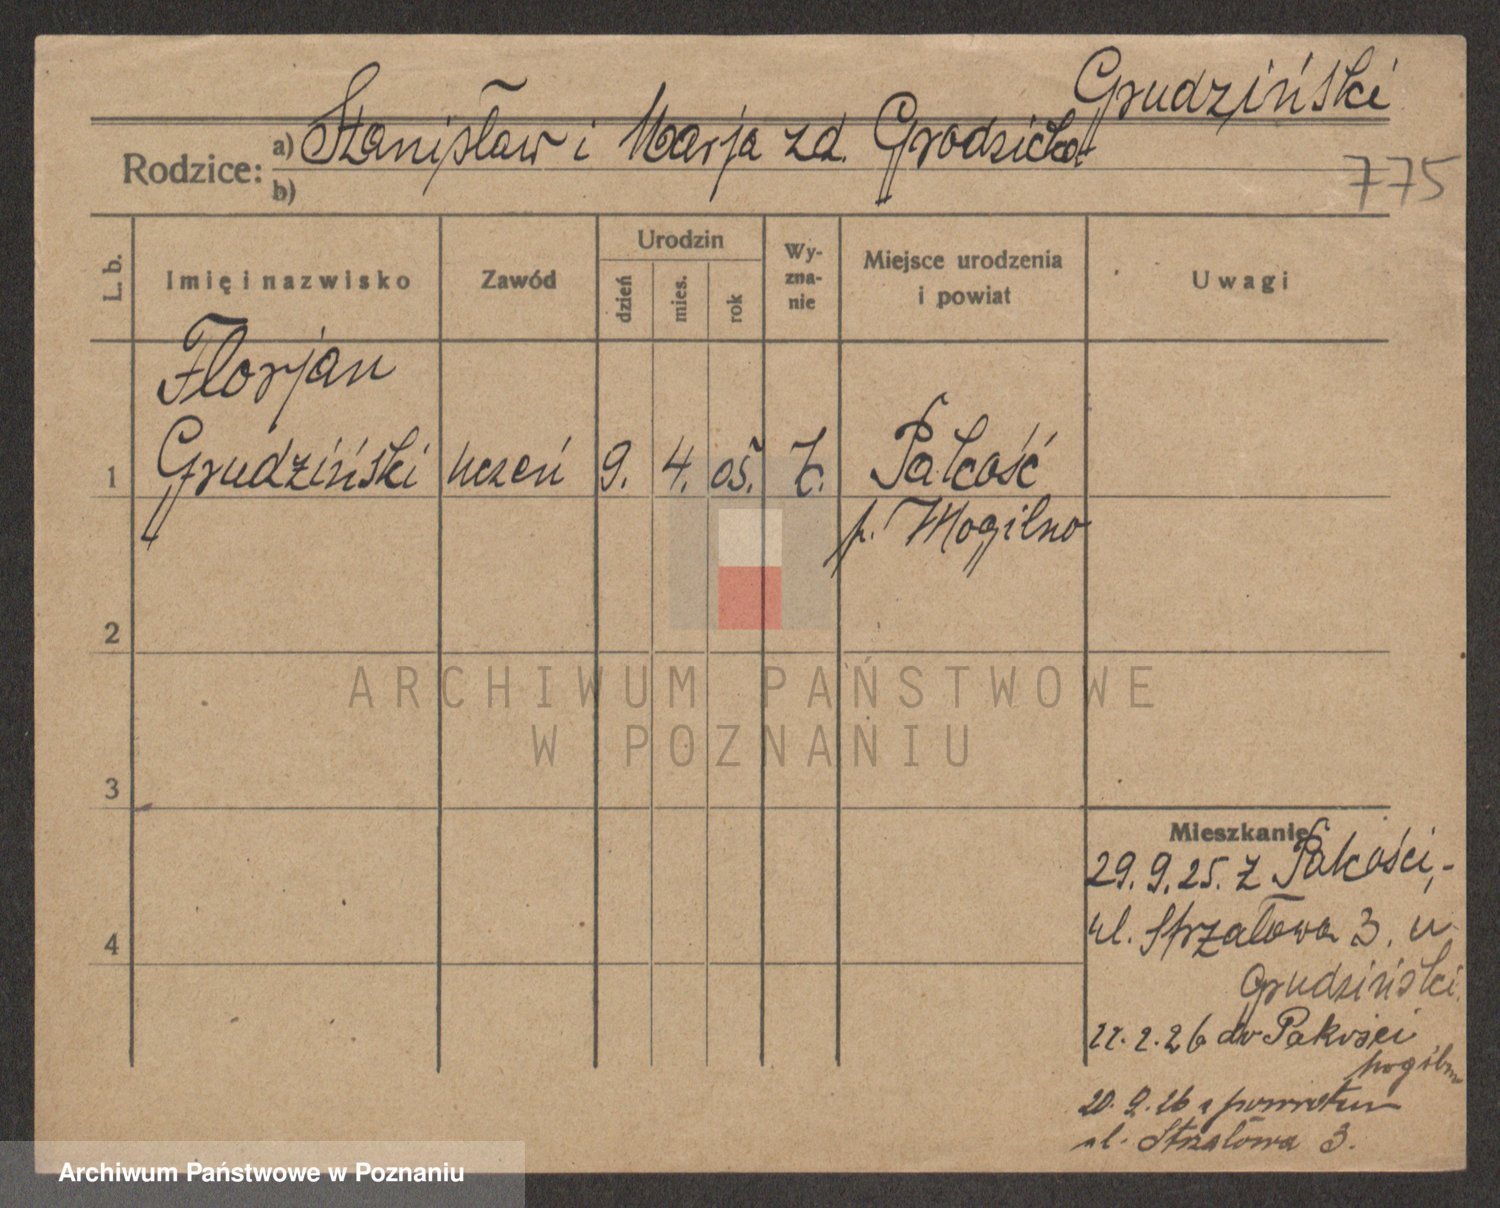 Grudziński
Rodzice: a) Stanisław i Marja zd. Grodzicka
b)
775
L. b. Imię i nazwisko Zawód Urodzin dzień mies. rok Wy-zna-nie Miejsce urodzenia i powiat Uwagi
Florjan
1 Grudziński uczeń 9. 4. 05. k. Pakość
p. Mogilno
2
ARCHIWUM PAŃSTWOWE
W POZNANIU
3
4
Mieszkanie
29. 9. 25. z Pakości,-
ul. Strzałowa 3. u
Grudziński
2.26 do Pakości
20. 9. 26 z powrotem
ul. Strzałowa 3.
Archiwum Państwowe w Poznaniu